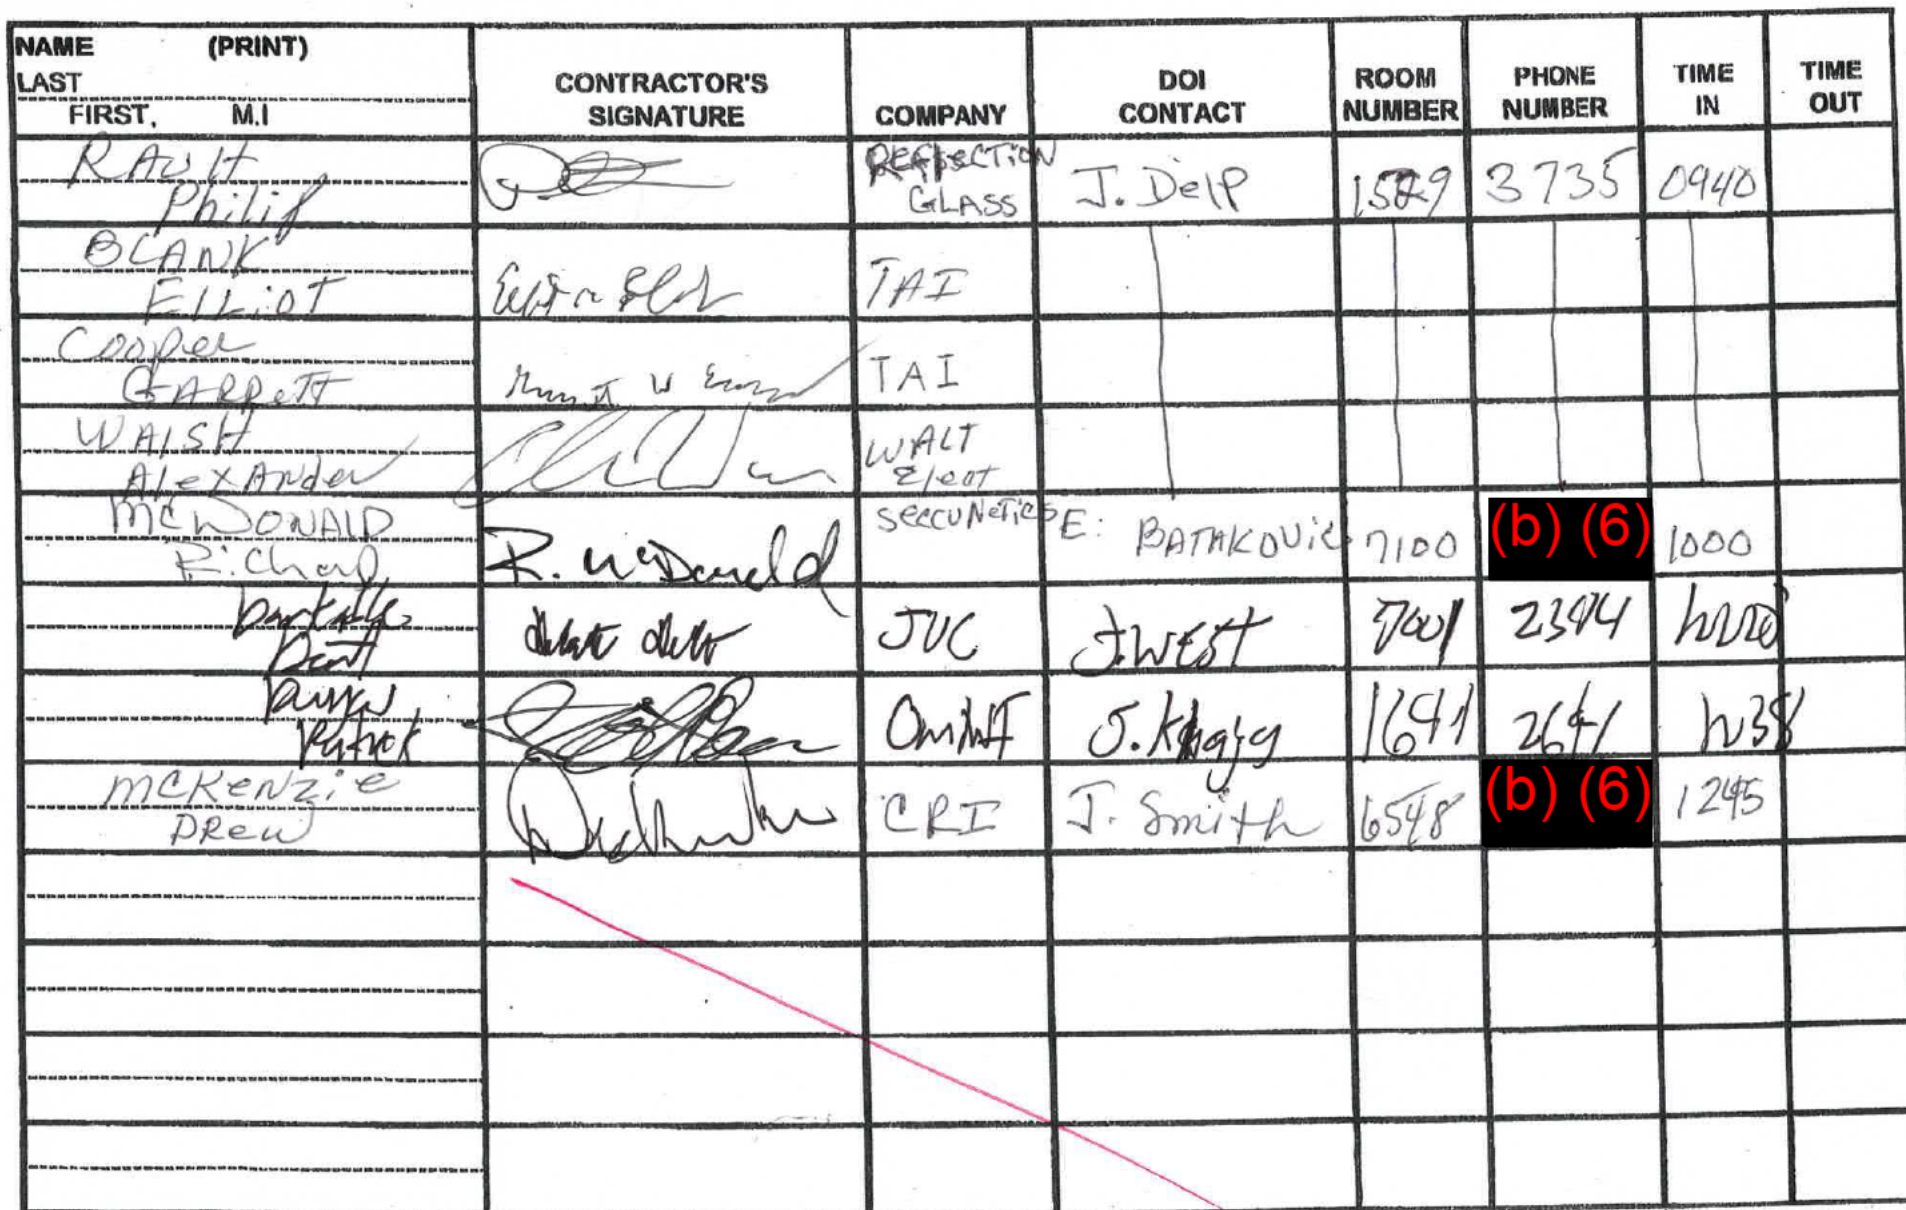 NAME (PRINT)
LAST
FIRST, M.I
CONTRACTOR'S
SIGNATURE
COMPANY
DOI
CONTACT
ROOM
NUMBER
PHONE
NUMBER
TIME
IN
TIME
OUT
RAULT
Philip
REFLECTION
GLASS
J. Delp
1529
3735
0940
BLANK
ELLiOT
TAI
Cooper
GARRETT
TAI
WALSH
AlexANder
WALT
Elect
MCDONALD
Richard
R. McDonald
SeccuNetics
E: BATAKOVIC
7100
(b) (6)
1000
JVC
J.WEST
7001
2374
Patrick
1641
2641
McKENZie
DRew
CRI
J. Smith
6548
(b) (6)
1245